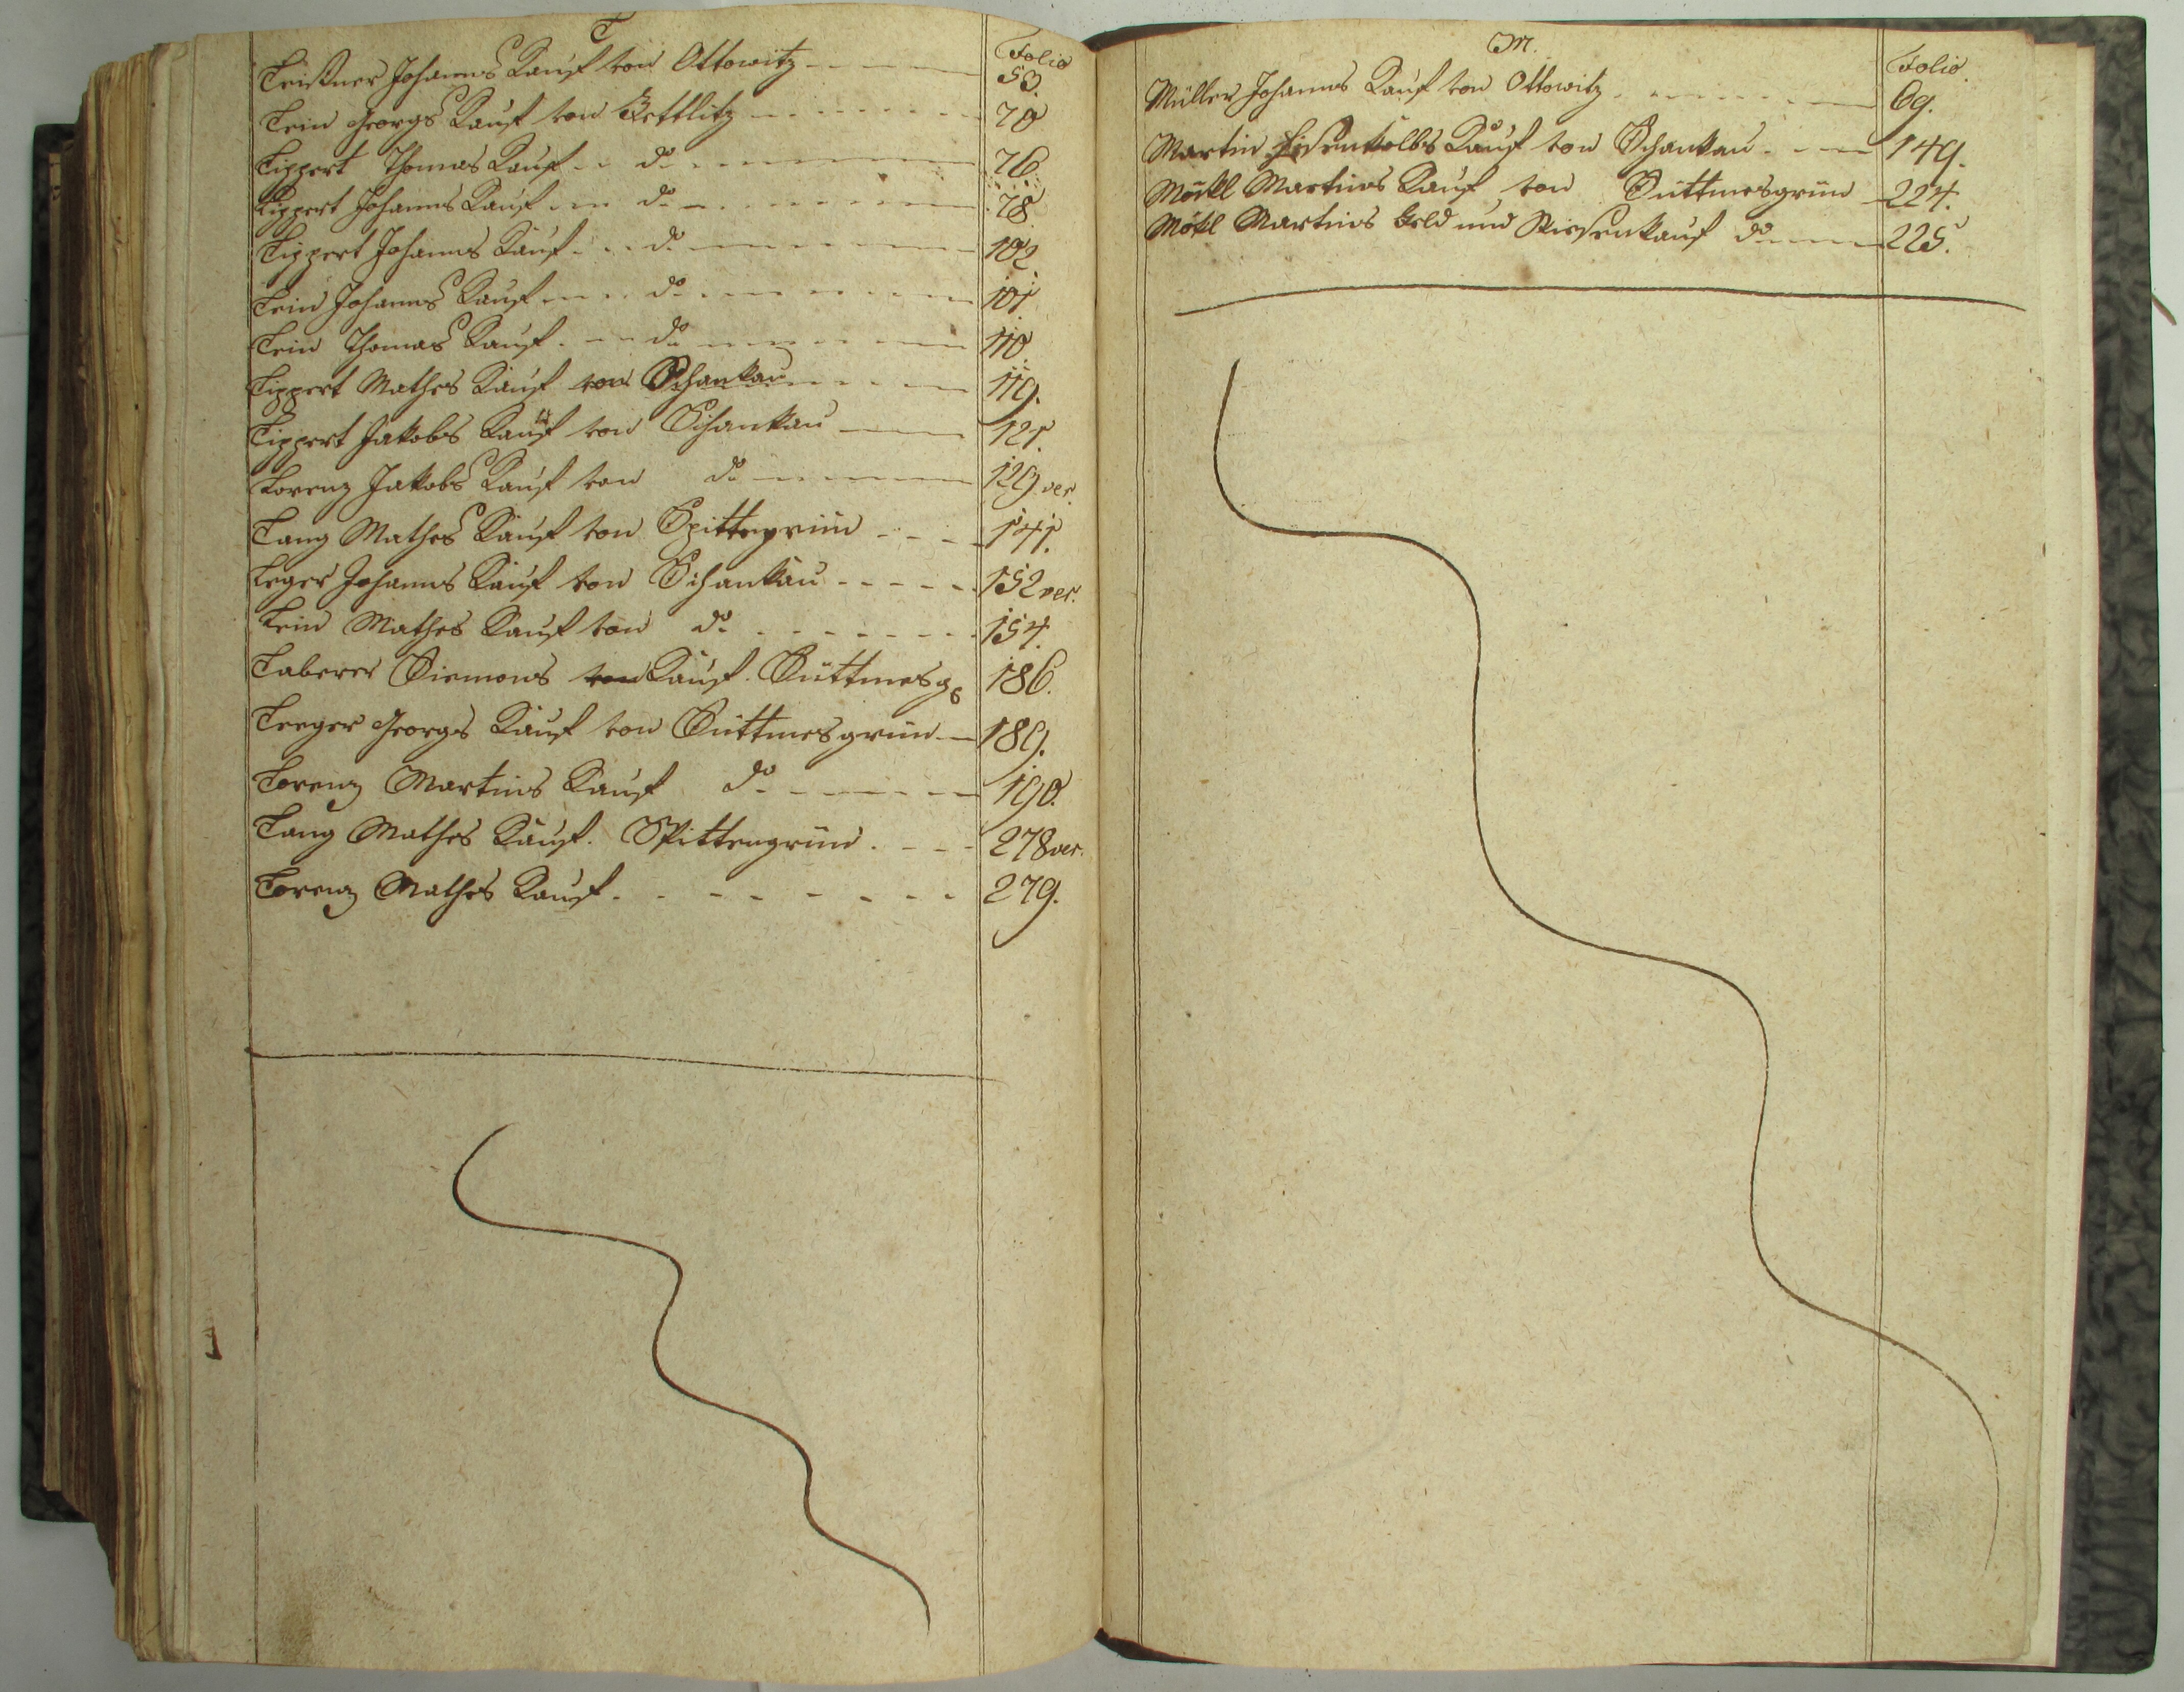 L
Folio
Leistner Johanns Kauf von Ottowitz 53.
Lein Georgs Kauf von Zettlitz 70
Lippert Thomas Kauf do 76
Lippert Johanns Kauf do 78
Lippert Johanns Kauf do 102
Lein Johanns Kauf do 107.
Lein Thomas Kauf do 110.
Lippert Mathes Kauf von Schankau 119.
Lippert Jakobs Kauf von Schankau 121.
Lorenz Jakobs Kauf von do 129 ver.
Lang Mathes Kauf von Spittengrün 141.
Leger Johanns Kauf von Schankau 152 ver.
Lein Mathes Kauf von do 154.
Laberer Siemons von Kauf. Süttmesg 186.
Leeger Georgs Kauf von Süttmesgrün 189.
Lorenz Martins Kauf do 190.
Lang Mathes Kauf. Spittengrün 278 ver.
Lorenz Mathes Kauf 279.
M.
Folio.
Müller Johanns Kauf von Ottowitz 69.
Martin Eisenkolbs Kauf von Schankau 149.
Möckl Martins Kauf von Süttmesgrün 224.
Mökl Martins Feld und Wiesenkauf do 225.